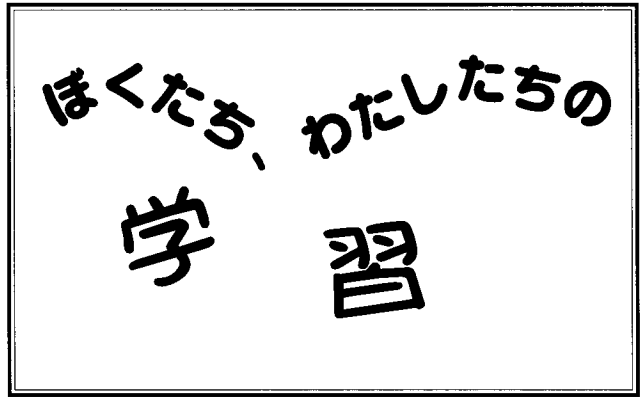 ぼくたち、わたしたちの
学習